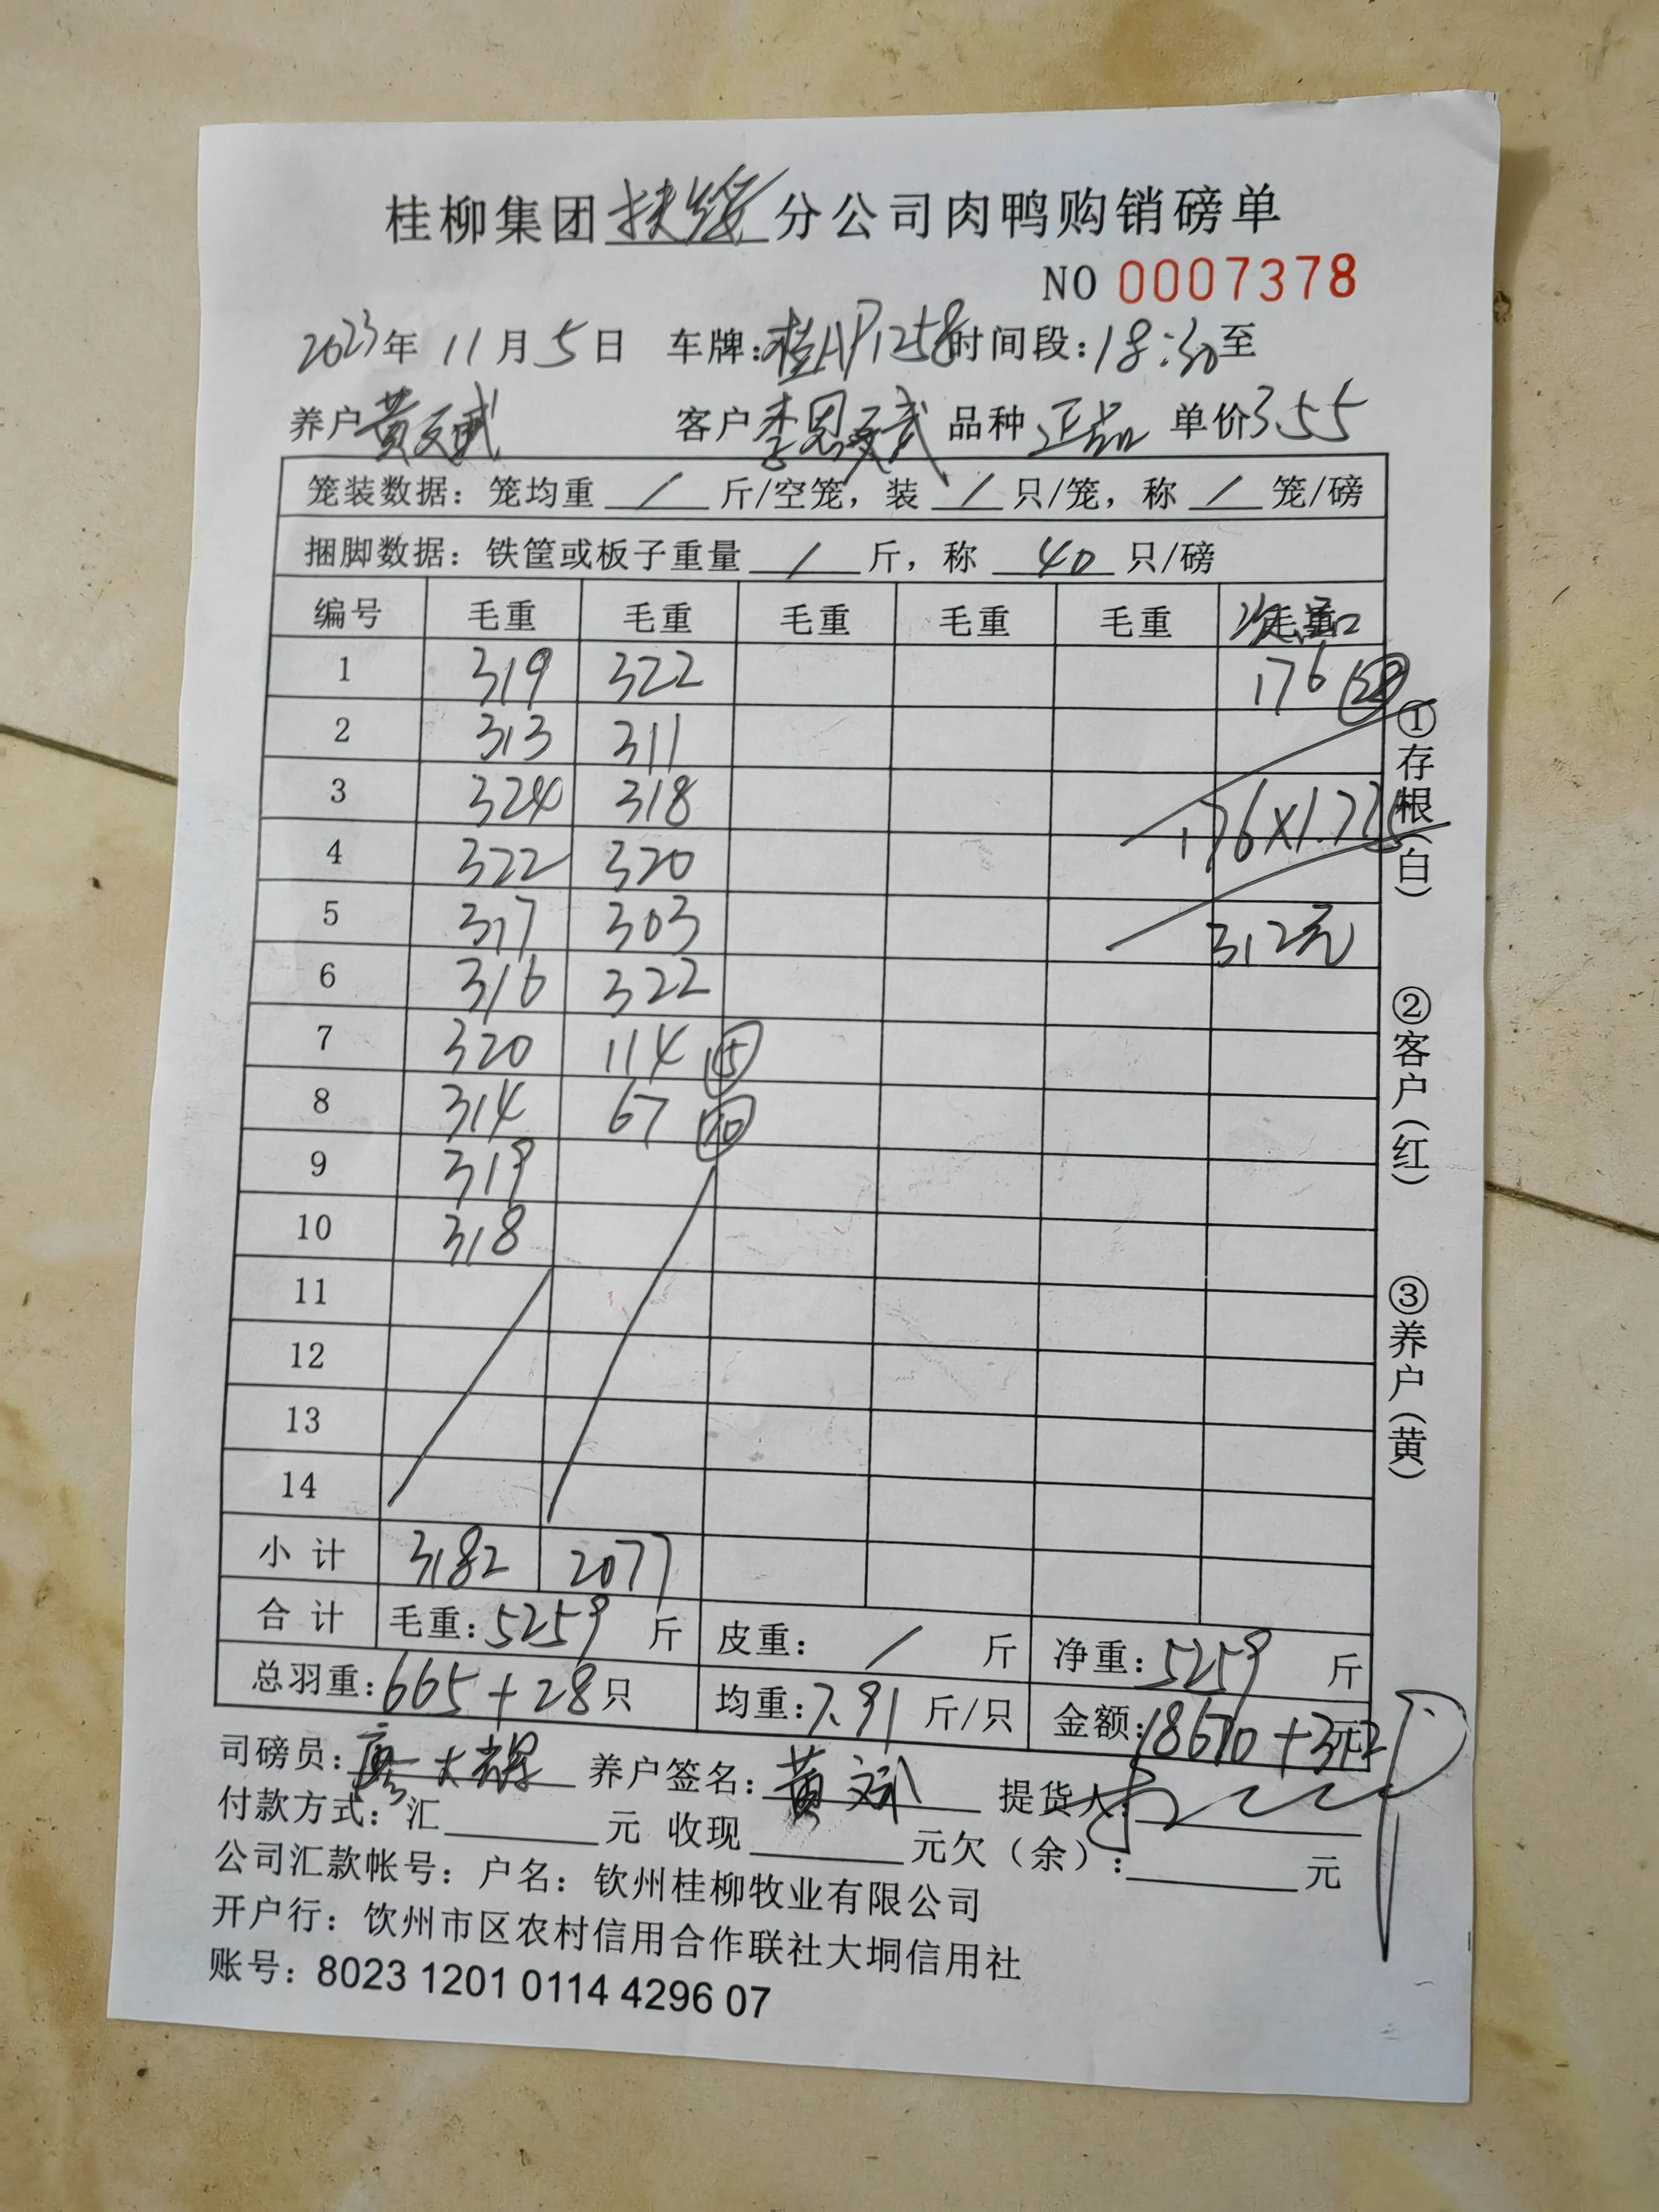 桂柳集团扶绥分公司肉鸭购销磅单
NO 0007378
2023年 11月5日 车牌:桂AP1258时间段:18:30至
养户黄 客户李恩武 品种 正品 单价3.55
笼装数据: 笼均重 / 斤/空笼, 装 / 只/笼, 称 / 笼/磅
捆脚数据: 铁筐或板子重量 / 斤, 称 40 只/磅
编号 毛重 毛重 毛重 毛重 毛重 次品
1 319 322 176 28
2 313 311
3 324 318 176×1.775
4 322 320
5 317 303 312元
6 316 322
7 320 114 15
8 314 67 10
9 319
10 318
11
12
13
14
小计 3182 2077
合计 毛重:5259 斤 皮重: / 斤 净重:5259 斤
总羽重:665+28只 均重:7.91斤/只 金额:18670+312元
司磅员:大 养户签名:黄 提货人:
付款方式: 汇 元 收现 元欠(余): 元
公司汇款帐号: 户名: 钦州桂柳牧业有限公司
开户行: 饮州市区农村信用合作联社大垌信用社
账号: 8023 1201 0114 4296 07
①存根(白) ②客户(红) ③养户(黄)